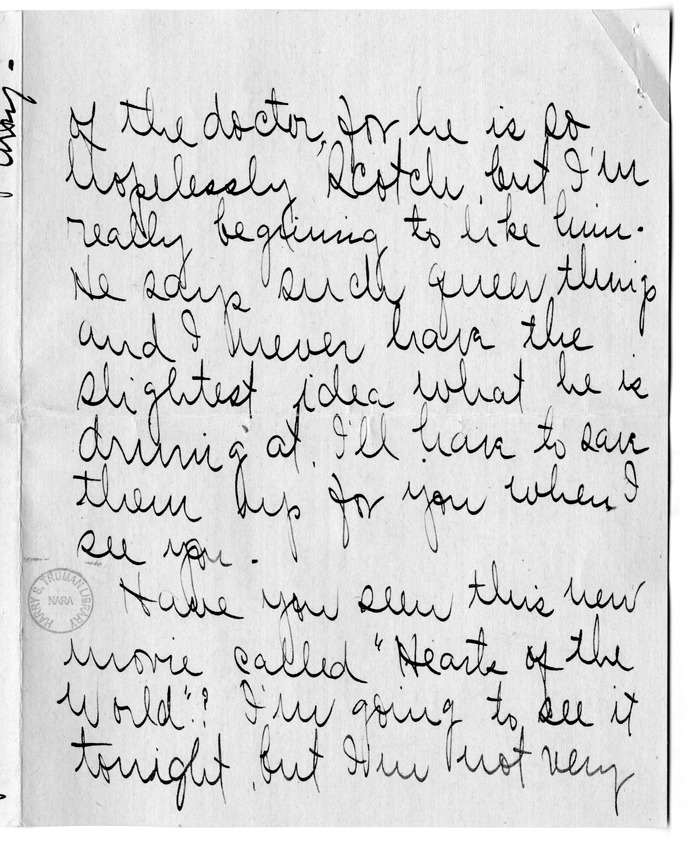 of the doctor, for he is so
hopelessly Scotch, but I'm
really begining to like him.
He says such queer things
and I never have the
slightest idea what he is
driving at. I'll have to save
them up for you when I
see you.
Have you seen this new
movie called "Hearts of the
World"? I'm going to see it
tonight, but I'm not very
HARRY S. TRUMAN LIBRARY
NARA